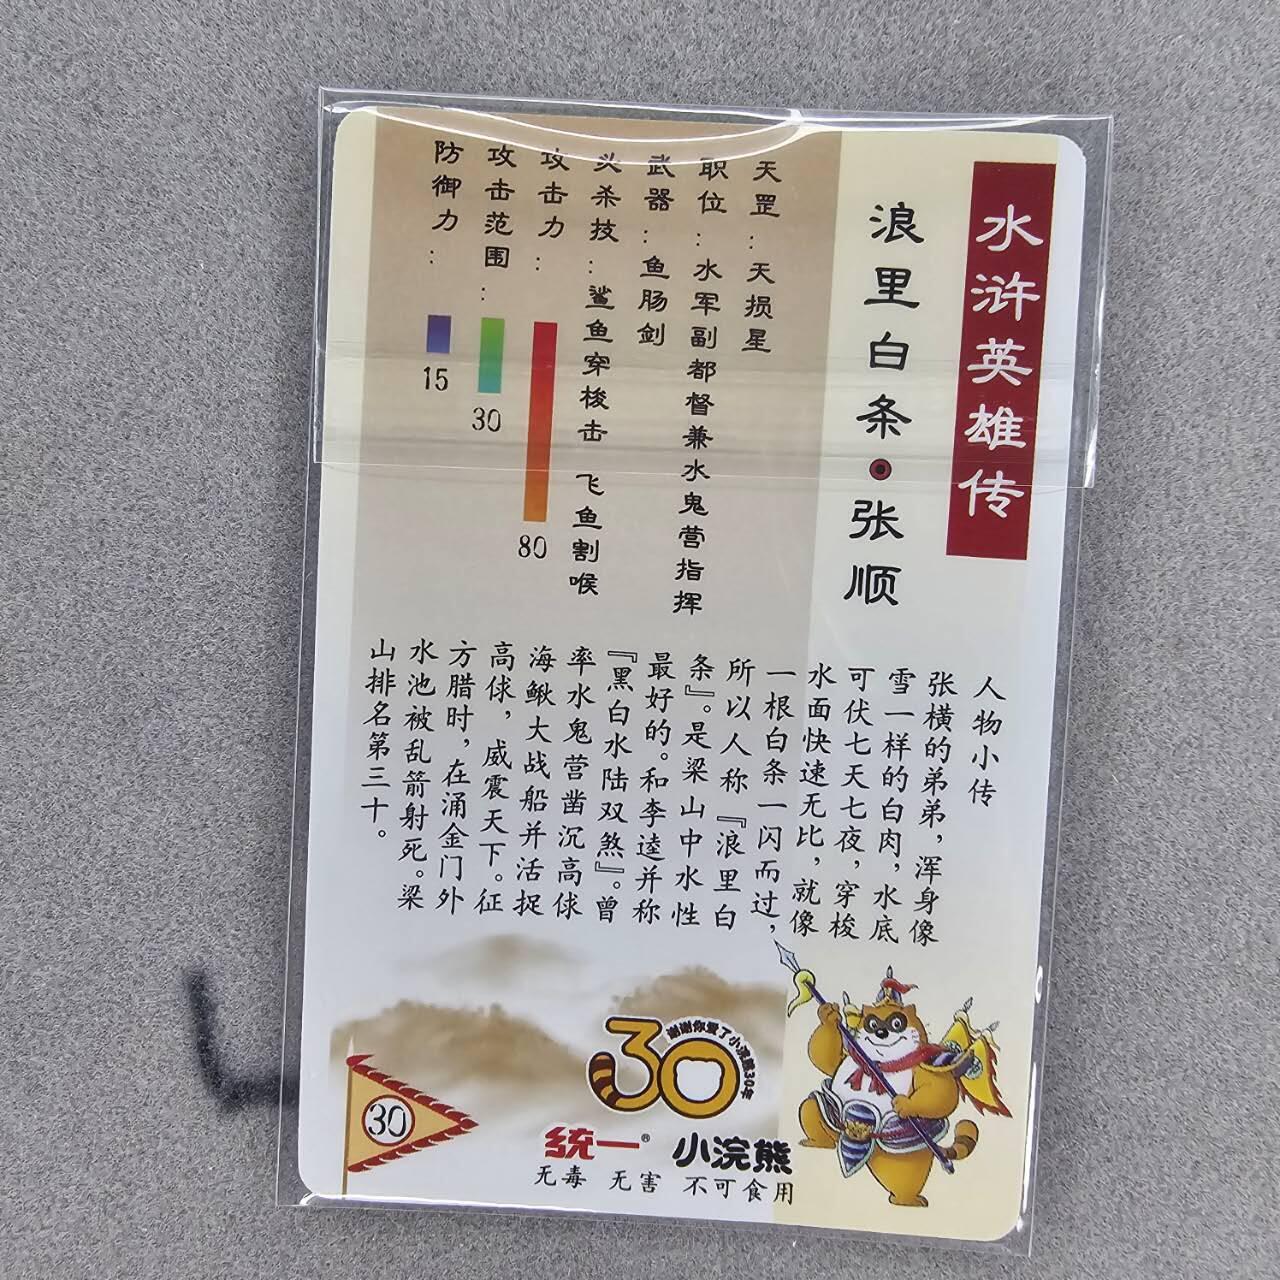 水浒英雄传
浪里白条·张顺
天罡：天损星
职位：水军副都督兼水鬼营指挥
武器：鱼肠剑
头杀技：鲨鱼穿梭击 飞鱼割喉
攻击力：
80
攻击范围：
30
防御力：
15
人物小传
张横的弟弟，浑身像
雪一样的白肉，水底
可伏七天七夜，穿梭
水面快速无比，就像
一根白条一闪而过，
所以人称『浪里白
条』。是梁山中水性
最好的。和李逵并称
『黑白水陆双煞』。曾
率水鬼营凿沉高俅
海鳅大战船并活捉
高俅，威震天下。征
方腊时，在涌金门外
水池被乱箭射死。梁
山排名第三十。
30
谢谢你爱了小浣熊30年
30
统一® 小浣熊
无毒 无害 不可食用